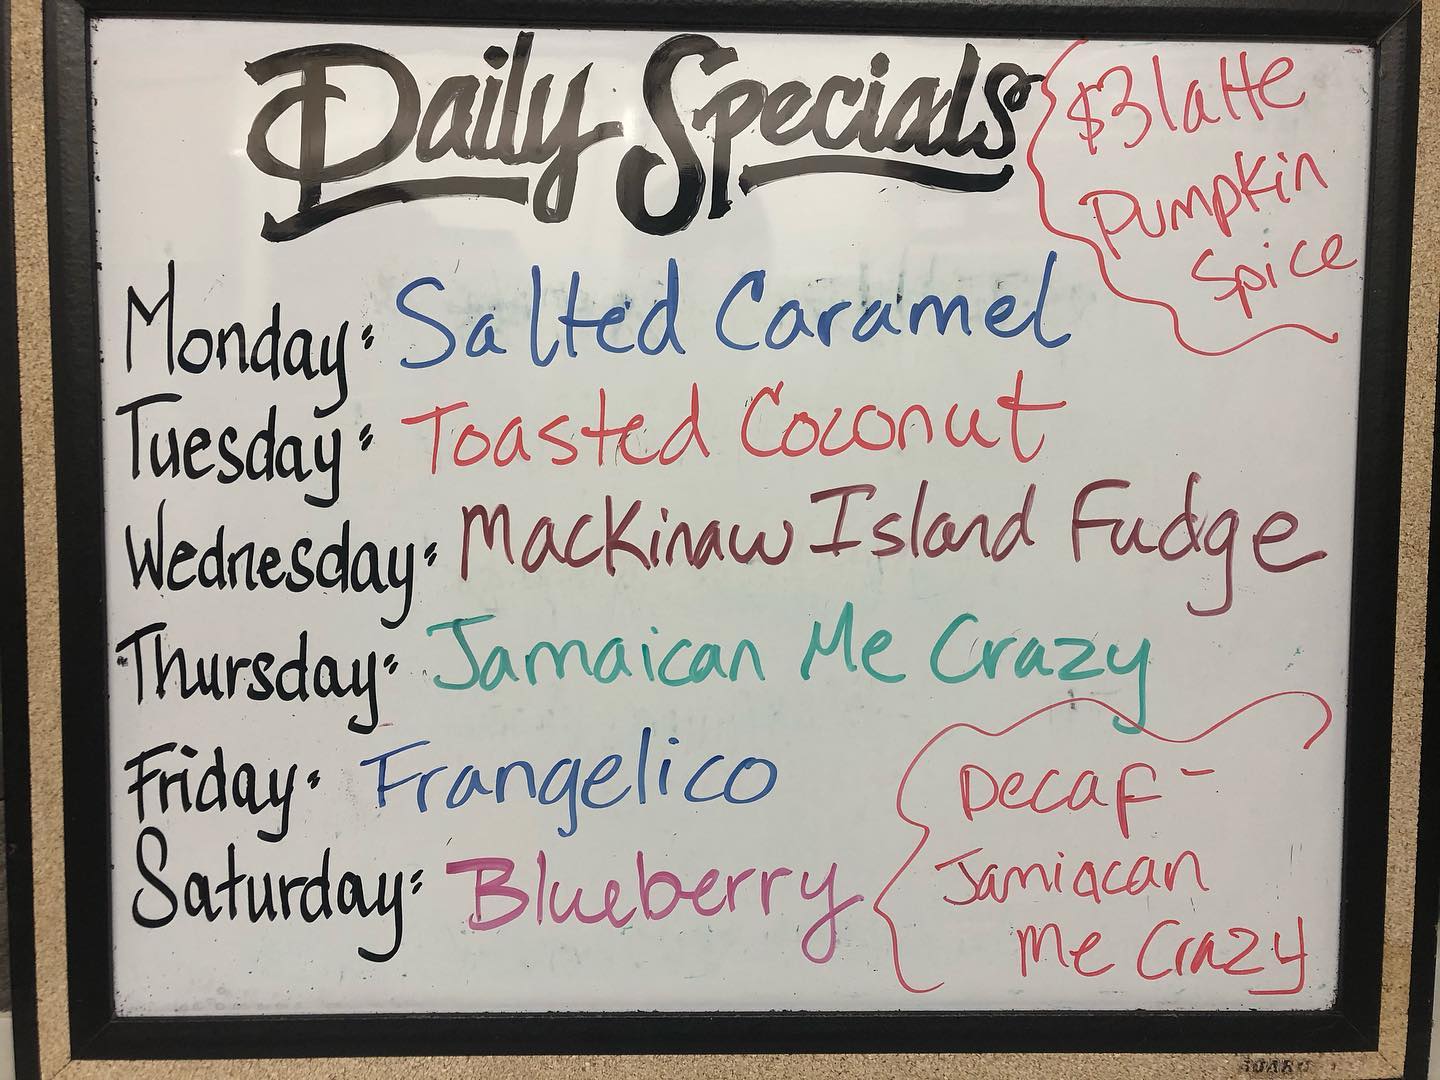 Daily Specials
$3 latte
Pumpkin
Spice
Monday: Salted Caramel
Tuesday: Toasted Coconut
Wednesday: Mackinaw Island Fudge
Thursday: Jamaican Me Crazy
Friday: Frangelico
Saturday: Blueberry
Decaf -
Jamiacan
Me Crazy